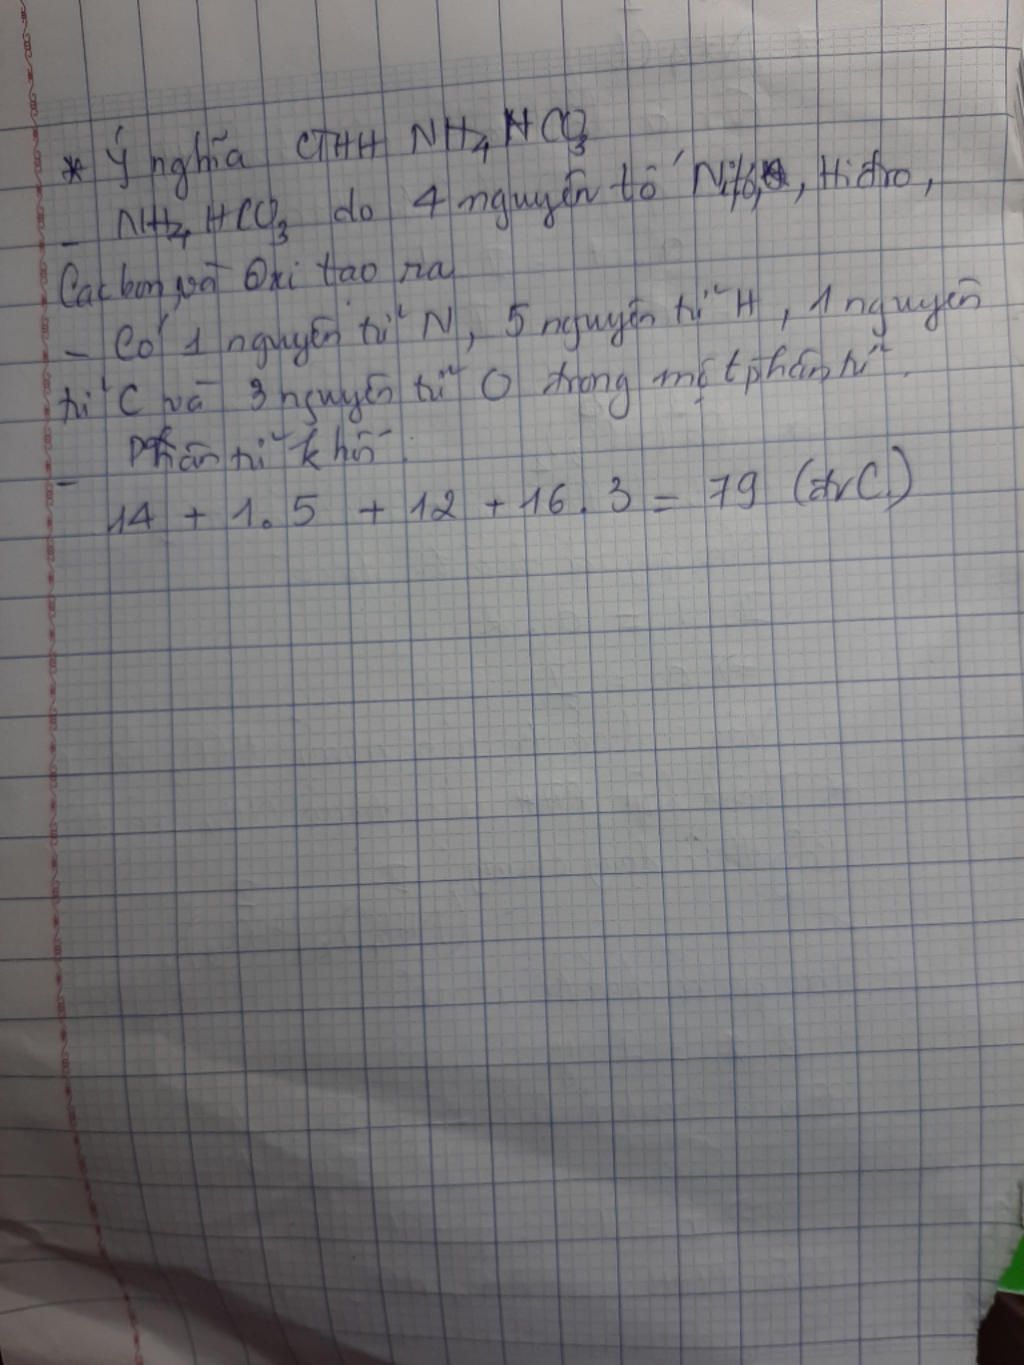 * Ý nghĩa CTHH NH₄HCO₃
- NH₄HCO₃ do 4 nguyên tố Nitơ, Hiđro,
Cacbon và Oxi tạo ra
- Có 1 nguyên tử N, 5 nguyên tử H, 1 nguyên
tử C và 3 nguyên tử O trong một phân tử.
- Phân tử khối:
14 + 1.5 + 12 + 16.3 = 79 (đvC)